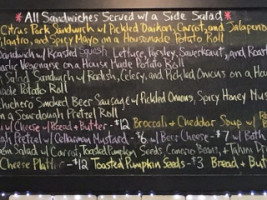 *All Sandwiches Served w/ a Side Salad*
Citrus Pork Sandwich w/ Pickled Daikon, Carrot, and Jalapeno
Cilantro, and Spicy Mayo on a Housemade Potato Roll
Sandwich w/ Roasted Squash, Lettuce, Parsley, Sauerkraut, and Roast
Garlic Vegenaise on a House Made Potato Roll
Salad Sandwich w/ Radish, Celery, and Pickled Onions on a House
Made Potato Roll
Smoked Beer Sausage w/ Pickled Onions, Spicy Honey Mus
on a Sourdough Pretzel Roll
w/ Cheese - Bread + Butter - $12 Broccoli + Cheddar Soup
Pretzel w/ Mustard - $6 w/ Beer Cheese - $7 w/ Both
Salad w/ Carrot, Toasted Pumpkin Seeds, Beans, + Tahini Dr
Cheese Plate - $12 Toasted Pumpkin Seeds - $3 Bread + But